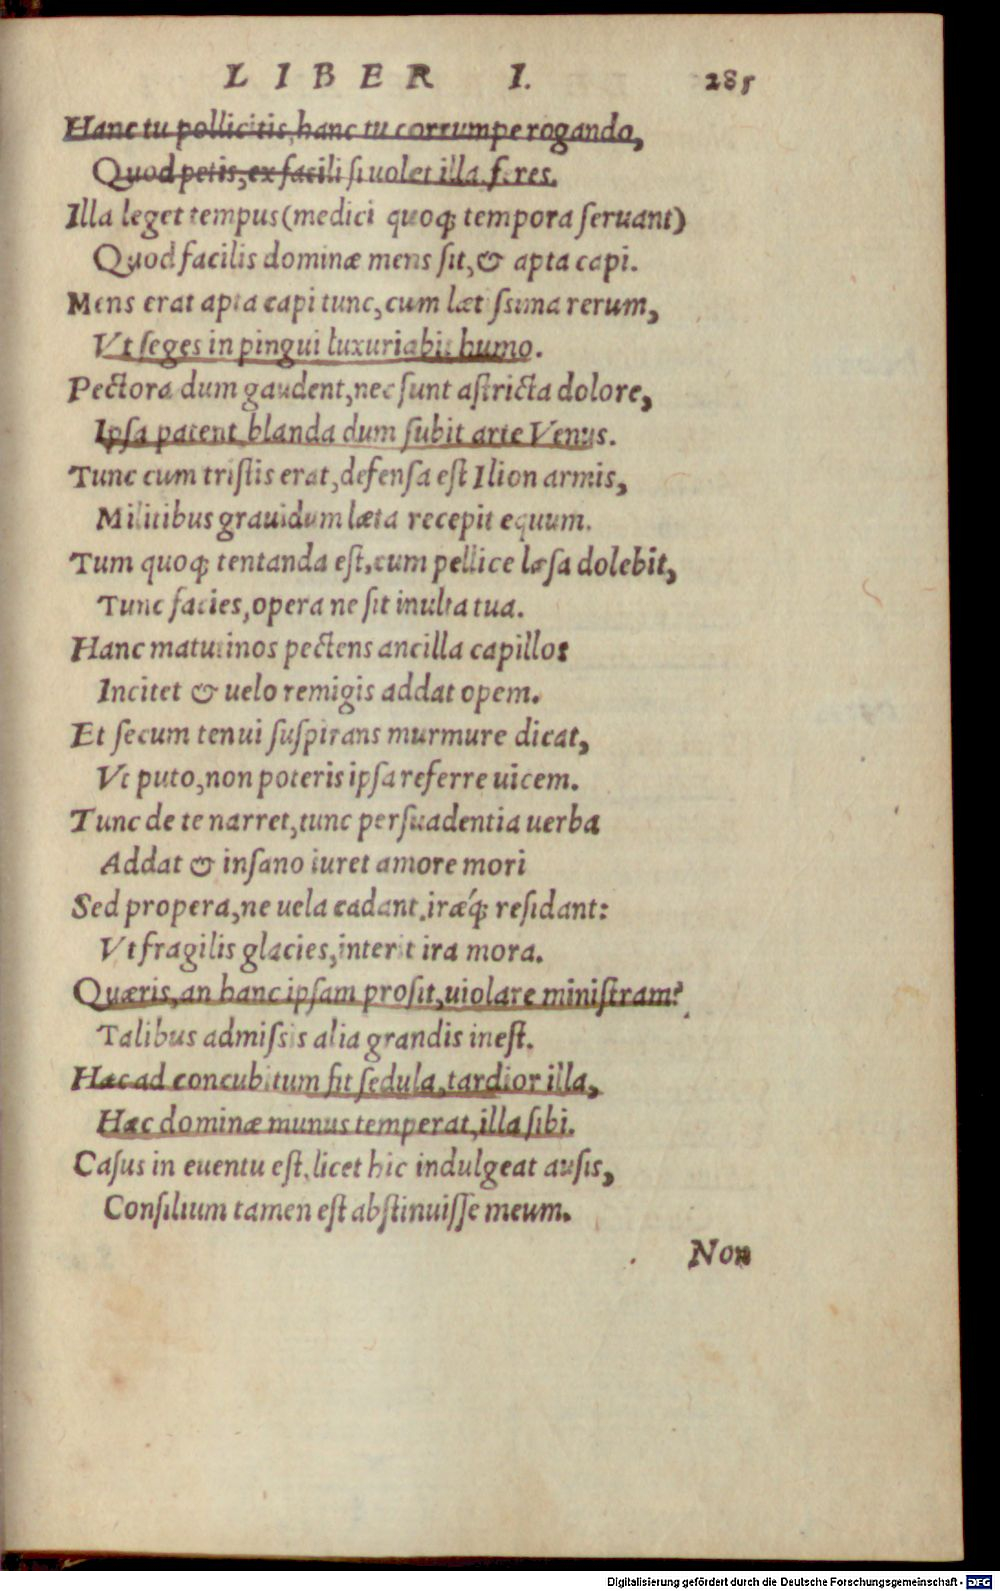 LIBER I. 285
Hanc tu pollicitis, hanc tu corrumpe rogando,
Quod petis, ex facili si uolet illa feres.
Illa leget tempus (medici quoq; tempora ſeruant)
Quod facilis dominæ mens ſit, & apta capi.
Mens erat apta capi tunc, cum lætiſſima rerum,
Vt ſeges in pingui luxuriabit humo.
Pectora dum gaudent, nec ſunt aſtricta dolore,
Ipſa patent blanda dum ſubit arte Venus.
Tunc cum triſtis erat, defenſa eſt Ilion armis,
Militibus grauidum læta recepit equum.
Tum quoq; tentanda eſt, cum pellice læſa dolebit,
Tunc facies, opera ne ſit inulta tua.
Hanc matutinos pectens ancilla capillos
Incitet & uelo remigis addat opem.
Et ſecum tenui ſuſpirans murmure dicat,
Vt puto, non poteris ipſa referre uicem.
Tunc de te narret, tunc perſuadentia uerba
Addat & inſano iuret amore mori
Sed propera, ne uela cadant, iræq́; reſidant:
Vt fragilis glacies, interit ira mora.
Quæris, an hanc ipſam proſit, uiolare miniſtram?
Talibus admiſsis alia grandis ineſt.
Hæc ad concubitum fit ſedula, tardior illa,
Hæc dominæ munus temperat, illa ſibi.
Caſus in euentu eſt, licet hic indulgeat auſis,
Conſilium tamen eſt abſtinuiſſe meum.
Non
Digitalisierung gefördert durch die Deutsche Forschungsgemeinschaft - DFG